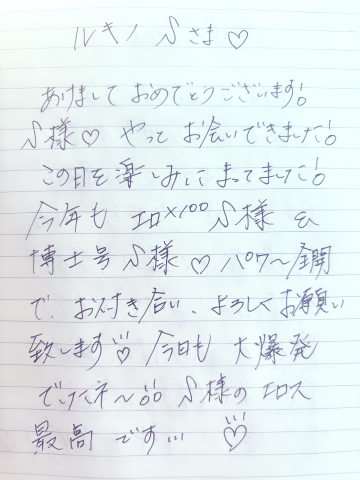 ルキノ Sさま♡
あけまして おめでとうございます!
S様♡ やっと お会いできました!
この日を楽しみに まってました!
今年も エロ×100 S様 &
博士号 S様♡ パワ〜全開
で、お付き合い、よろしくお願い
致します♡ 今日も 大爆発
でしたネ〜!! S様の エロス
最高 です… ♡